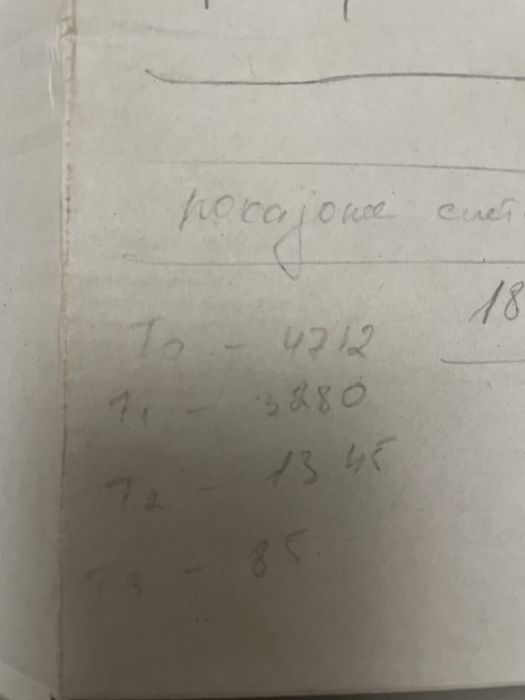 показание счёт
18
T0 - 4712
T1 - 3880
T2 - 1345
T3 - 85